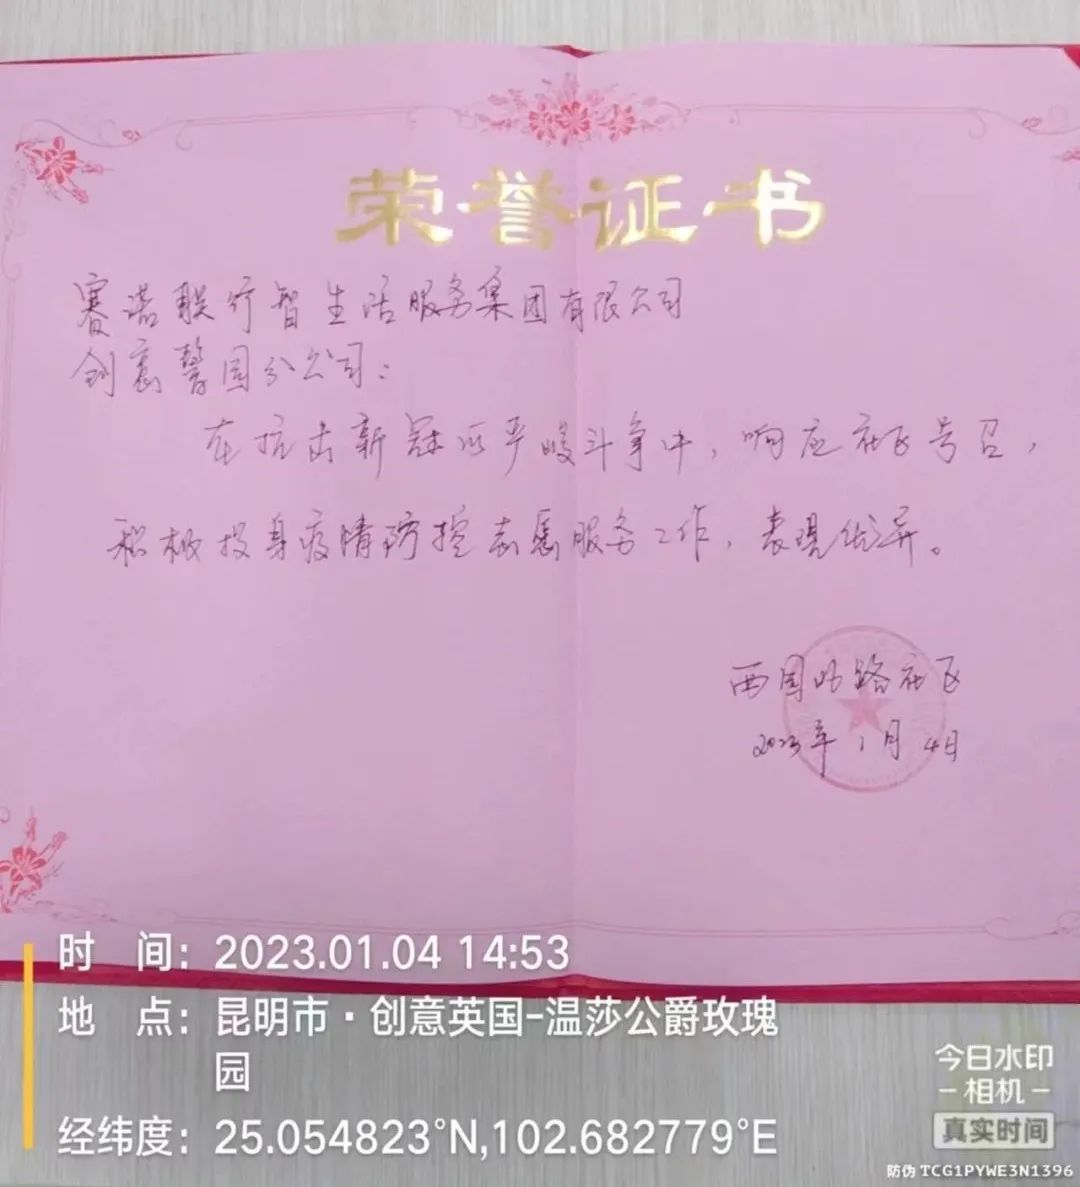 荣誉证书
赛诺联行智生活服务集团有限公司
创意馨园分公司：
在抗击新冠严峻斗争中，响应社区号召，
积极投身疫情防控志愿服务工作，表现优异。
西园路社区
2023年1月4日
时 间：2023.01.04 14:53
地 点：昆明市·创意英国-温莎公爵玫瑰
园
经纬度：25.054823°N,102.682779°E
今日水印
相机
真实时间
防伪 TCG1PYWE3N1396